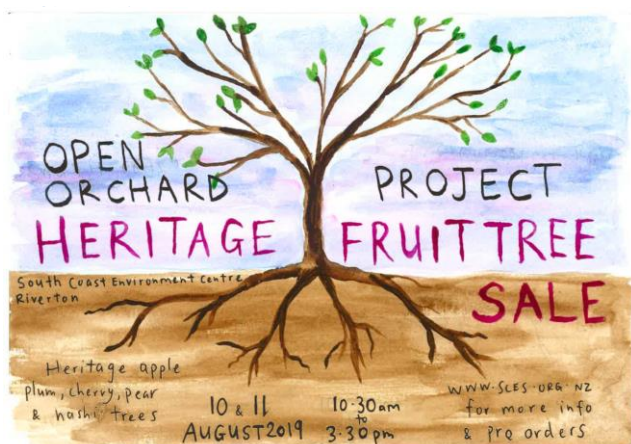 OPEN
ORCHARD
PROJECT
HERITAGE FRUIT TREE
SALE
South Coast Environment Centre
Riverton
Heritage apple
plum, cherry, pear
& nashi trees
10 & 11
AUGUST 2019
10·30am
to
3·30pm
WWW·SCES·ORG·NZ
for more info
& pro orders